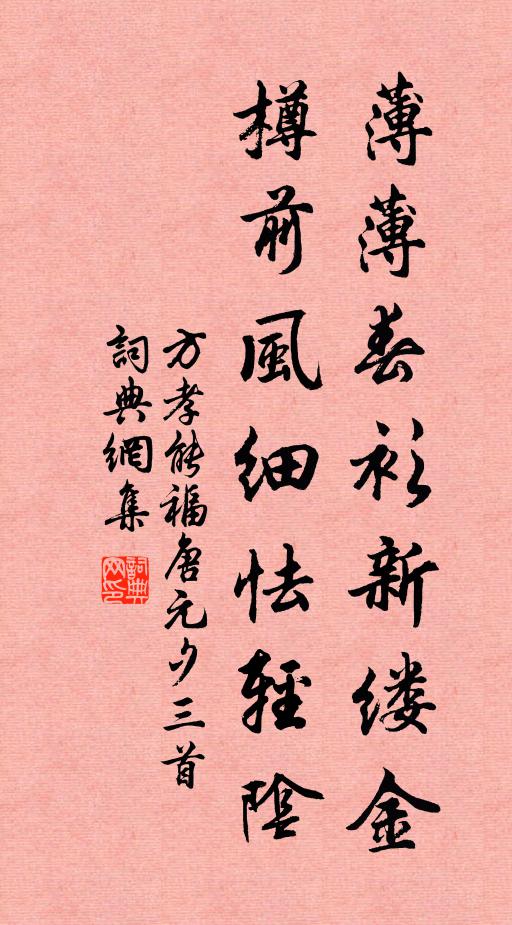 薄薄春衫新缕金
樽前風細怯輕陰
方孝能福唐元夕三首
詞典網集
詞典网印